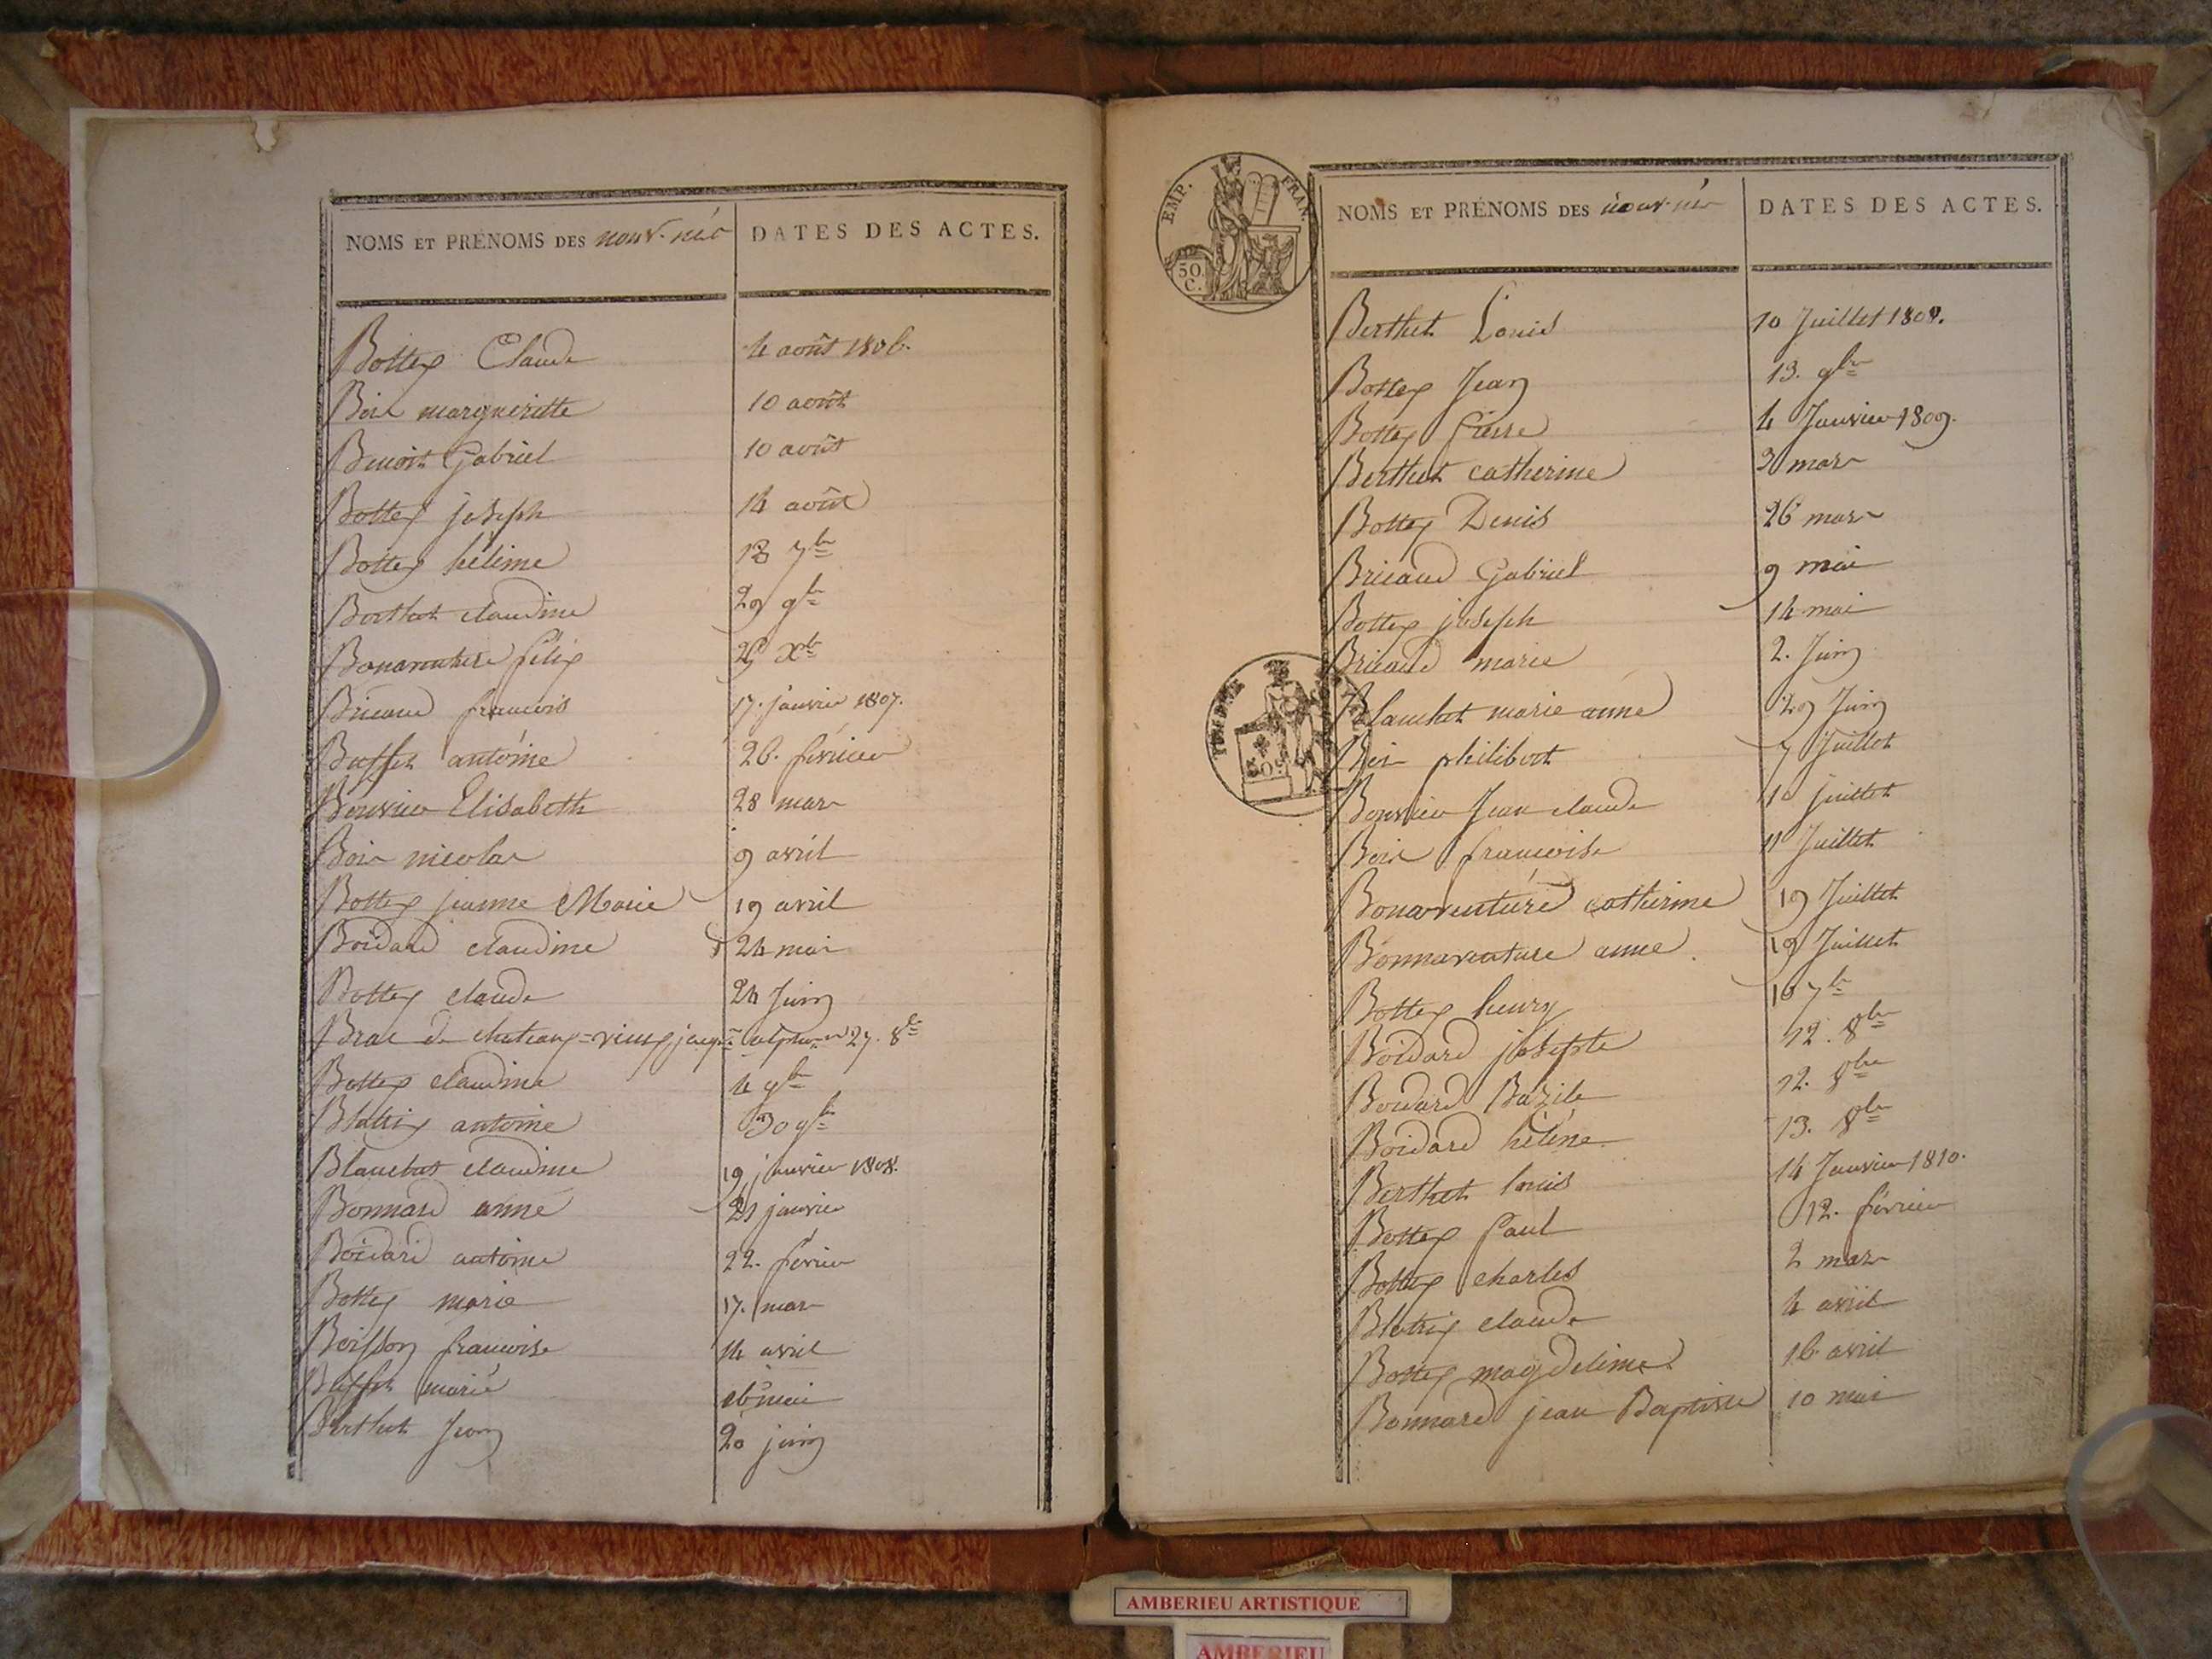 NOMS ET PRÉNOMS DES nouv. nés DATES DES ACTES.
Bottex Claude 4 août 1806.
Bois margueritte 10 août
Benoit Gabriel 10 août
Bottex joseph 14 août
Bottex hélène 7bre
Berthet claudine 29 9bre
Bonaventure félix Xbre
Bricaud francois 17. janvier 1807.
Buffet antoine 26. février
Bouvier Elisabeth 28 mars
Bois nicolas 9 avril
Bottex jeanne Marie 19 avril
Boidard claudine 24 mai
Bottex claude 24 Juin
Brac de chateau=vieux 27. 8bre
Bottex claudine 4 9bre
Bletrix antoine 30 9bre
Blanchet claudine 19 janvier 1808.
Bonnard anne 21 janvier
Boidard antoine 22. février
Bottex marie 17. mars
Boisson francoise 14 avril
Buffet marie mai
Berthet Jean 20 juin
EMP. FRAN.
50. C.
NOMS ET PRÉNOMS DES nouv. nés DATES DES ACTES.
Berthet Louis 10 Juillet 1808.
Bottex Jean 13. 9bre
Bottex Pierre 4 Janvier 1809.
Berthet catherine mars
Bottex Denis 26 mars
Bricaud Gabriel 9 mai
Bottex joseph 14 mai
Bricaud marie 2. Juin
Blanchet marie anne 29 Juin
Bois philibert 7 Juillet
Bouvier Jean claude 10 juillet
Bois francoise 11 Juillet
Bonaventure catherine 19 Juillet
Bonnaventure anne. 19 Juillet
Bottex henry 7bre
Boidard josephte 12. 8bre
Boidard Bazile 12. 8bre
Boidard hélène 13. 8bre
Berthet louis 14 Janvier 1810.
Bottex Paul 12. février
Bottex charles 2 mars
Bletrix claude 4 avril
Bottex magdeleine 16 avril
Bonnard jean Baptiste 10 mai
AMBERIEU ARTISTIQUE
AMBERIEU